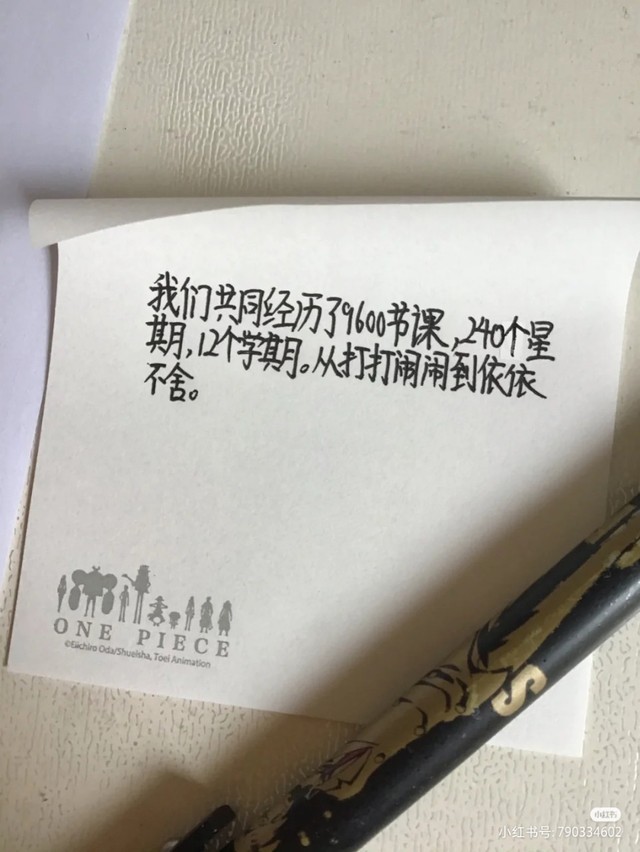 我们共同经历了9600节课,240个星
期,12个学期。从打打闹闹到依依
不舍。
ONE PIECE
©Eiichiro Oda/Shueisha, Toei Animation
S
小红书
小红书号:790334602